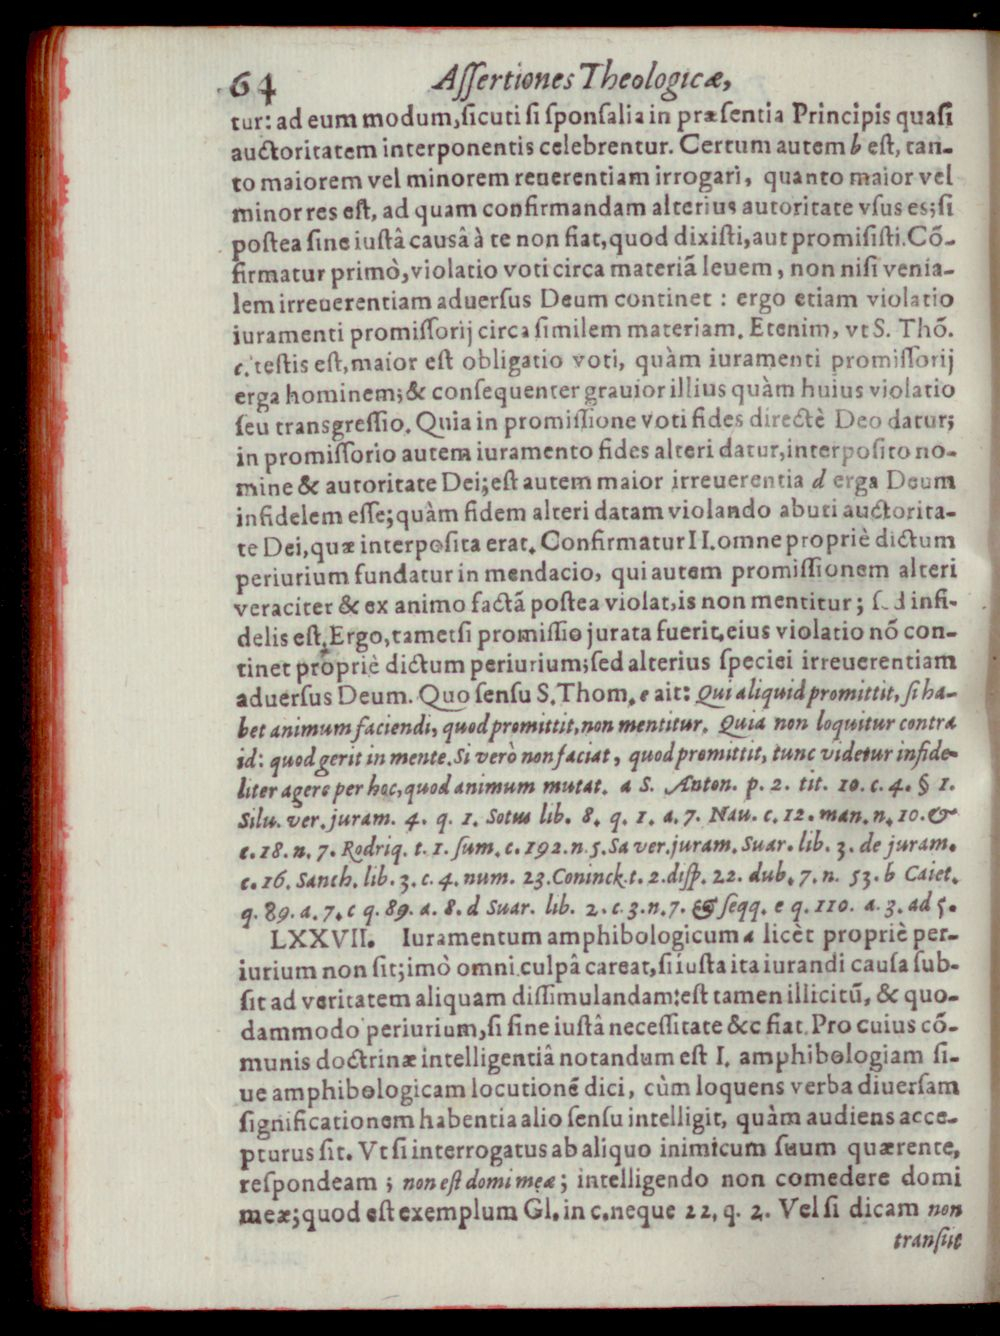 64 Aſſertiones Theologicæ,
tur: ad eum modum, ſicuti ſi ſponſalia in præſentia Principis quaſi
auctoritatem interponentis celebrentur. Certum autem b eſt, tan-
to maiorem vel minorem reuerentiam irrogari, quanto maior vel
minor res eſt, ad quam confirmandam alterius autoritate vſus es; ſi
poſtea ſine iuſtâ causâ à te non fiat, quod dixiſti, aut promiſiſti. Cõ-
firmatur primò, violatio voti circa materiã leuem, non niſi venia-
lem irreuerentiam aduerſus Deum continet : ergo etiam violatio
iuramenti promiſſorij circa ſimilem materiam. Etenim, vt S. Thõ.
c. teſtis eſt, maior eſt obligatio voti, quàm iuramenti promiſſorij
erga hominem; & conſequenter grauior illius quàm huius violatio
ſeu transgreſſio. Quia in promiſſione voti fides directè Deo datur;
in promiſſorio autem iuramento fides alteri datur, interpoſito no-
mine & autoritate Dei; eſt autem maior irreuerentia d erga Deum
infidelem eſſe; quàm fidem alteri datam violando abuti auctorita-
te Dei, quæ interpoſita erat. Confirmatur II. omne propriè dictum
periurium fundatur in mendacio, qui autem promiſſionem alteri
veraciter & ex animo factã poſtea violat, is non mentitur; ſed infi-
delis eſt. Ergo, tametſi promiſſio jurata fuerit, eius violatio nõ con-
tinet propriè dictum periurium; ſed alterius ſpeciei irreuerentiam
aduerſus Deum. Quo ſenſu S. Thom. e ait: Qui aliquid promittit, ſi ha-
bet animum faciendi, quod promittit, non mentitur. Quia non loquitur contra
id: quod gerit in mente. Si verò non faciat, quod promittit, tunc videtur infide-
liter agere per hoc, quod animum mutat. a S. Anton. p. 2. tit. 10. c. 4. § 1.
Silu. ver. juram. 4. q. 1. Sotus lib. 8. q. 1. a. 7. Nau. c. 12. man. n. 10. &
c. 18. n. 7. Rodriq. t. 1. ſum. c. 192. n. 5. Sa ver. juram. Suar. lib. 3. de juram.
c. 16. Sanch. lib. 3. c. 4. num. 23. Coninck. t. 2. diſp. 22. dub. 7. n. 53. b Caiet.
q. 89. a. 7. c q. 89. a. 8. d Suar. lib. 2. c. 3. n. 7. & ſeqq. e q. 110. a. 3. ad 5.
LXXVII. Iuramentum amphibologicum a licèt propriè per-
iurium non ſit; imò omni culpâ careat, ſi iuſta ita iurandi cauſa ſub-
ſit ad veritatem aliquam diſſimulandam: eſt tamen illicitũ, & quo-
dammodo periurium, ſi ſine iuſtâ neceſſitate &c fiat. Pro cuius cõ-
munis doctrinæ intelligentiâ notandum eſt I. amphibologiam ſi-
ue amphibologicam locutionẽ dici, cùm loquens verba diuerſam
ſignificationem habentia alio ſenſu intelligit, quàm audiens acce-
pturus ſit. Vt ſi interrogatus ab aliquo inimicum ſuum quærente,
reſpondeam ; non eſt domi meæ ; intelligendo non comedere domi
meæ; quod eſt exemplum Gl. in c. neque 22, q. 2. Vel ſi dicam non
tranſiit